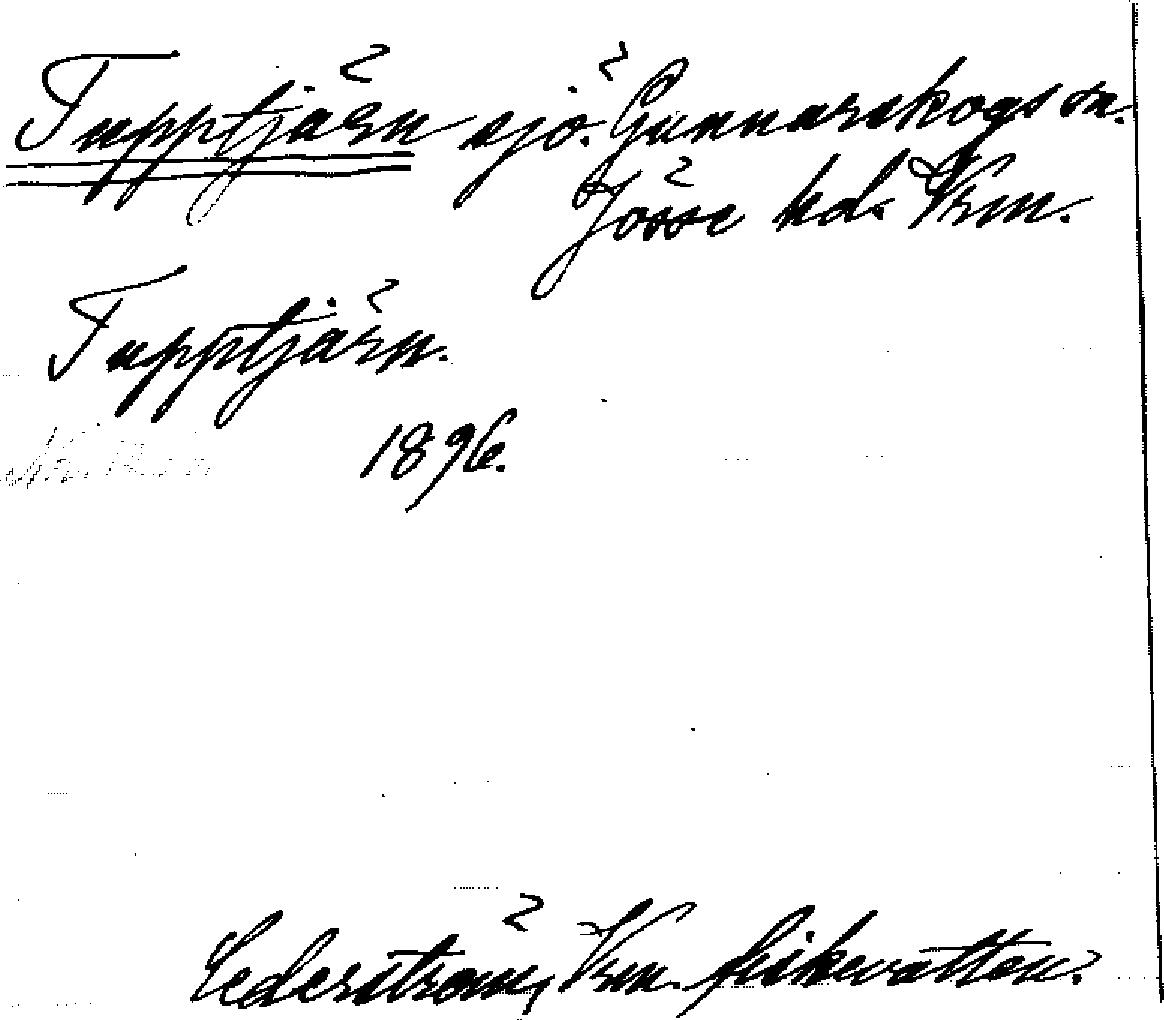 Tupptjärn sjö. Gunnarskogs sn.
Jösse hd. Vrm.
Tupptjärn.
1896.
Cederström, Vrm. fiskevatten.